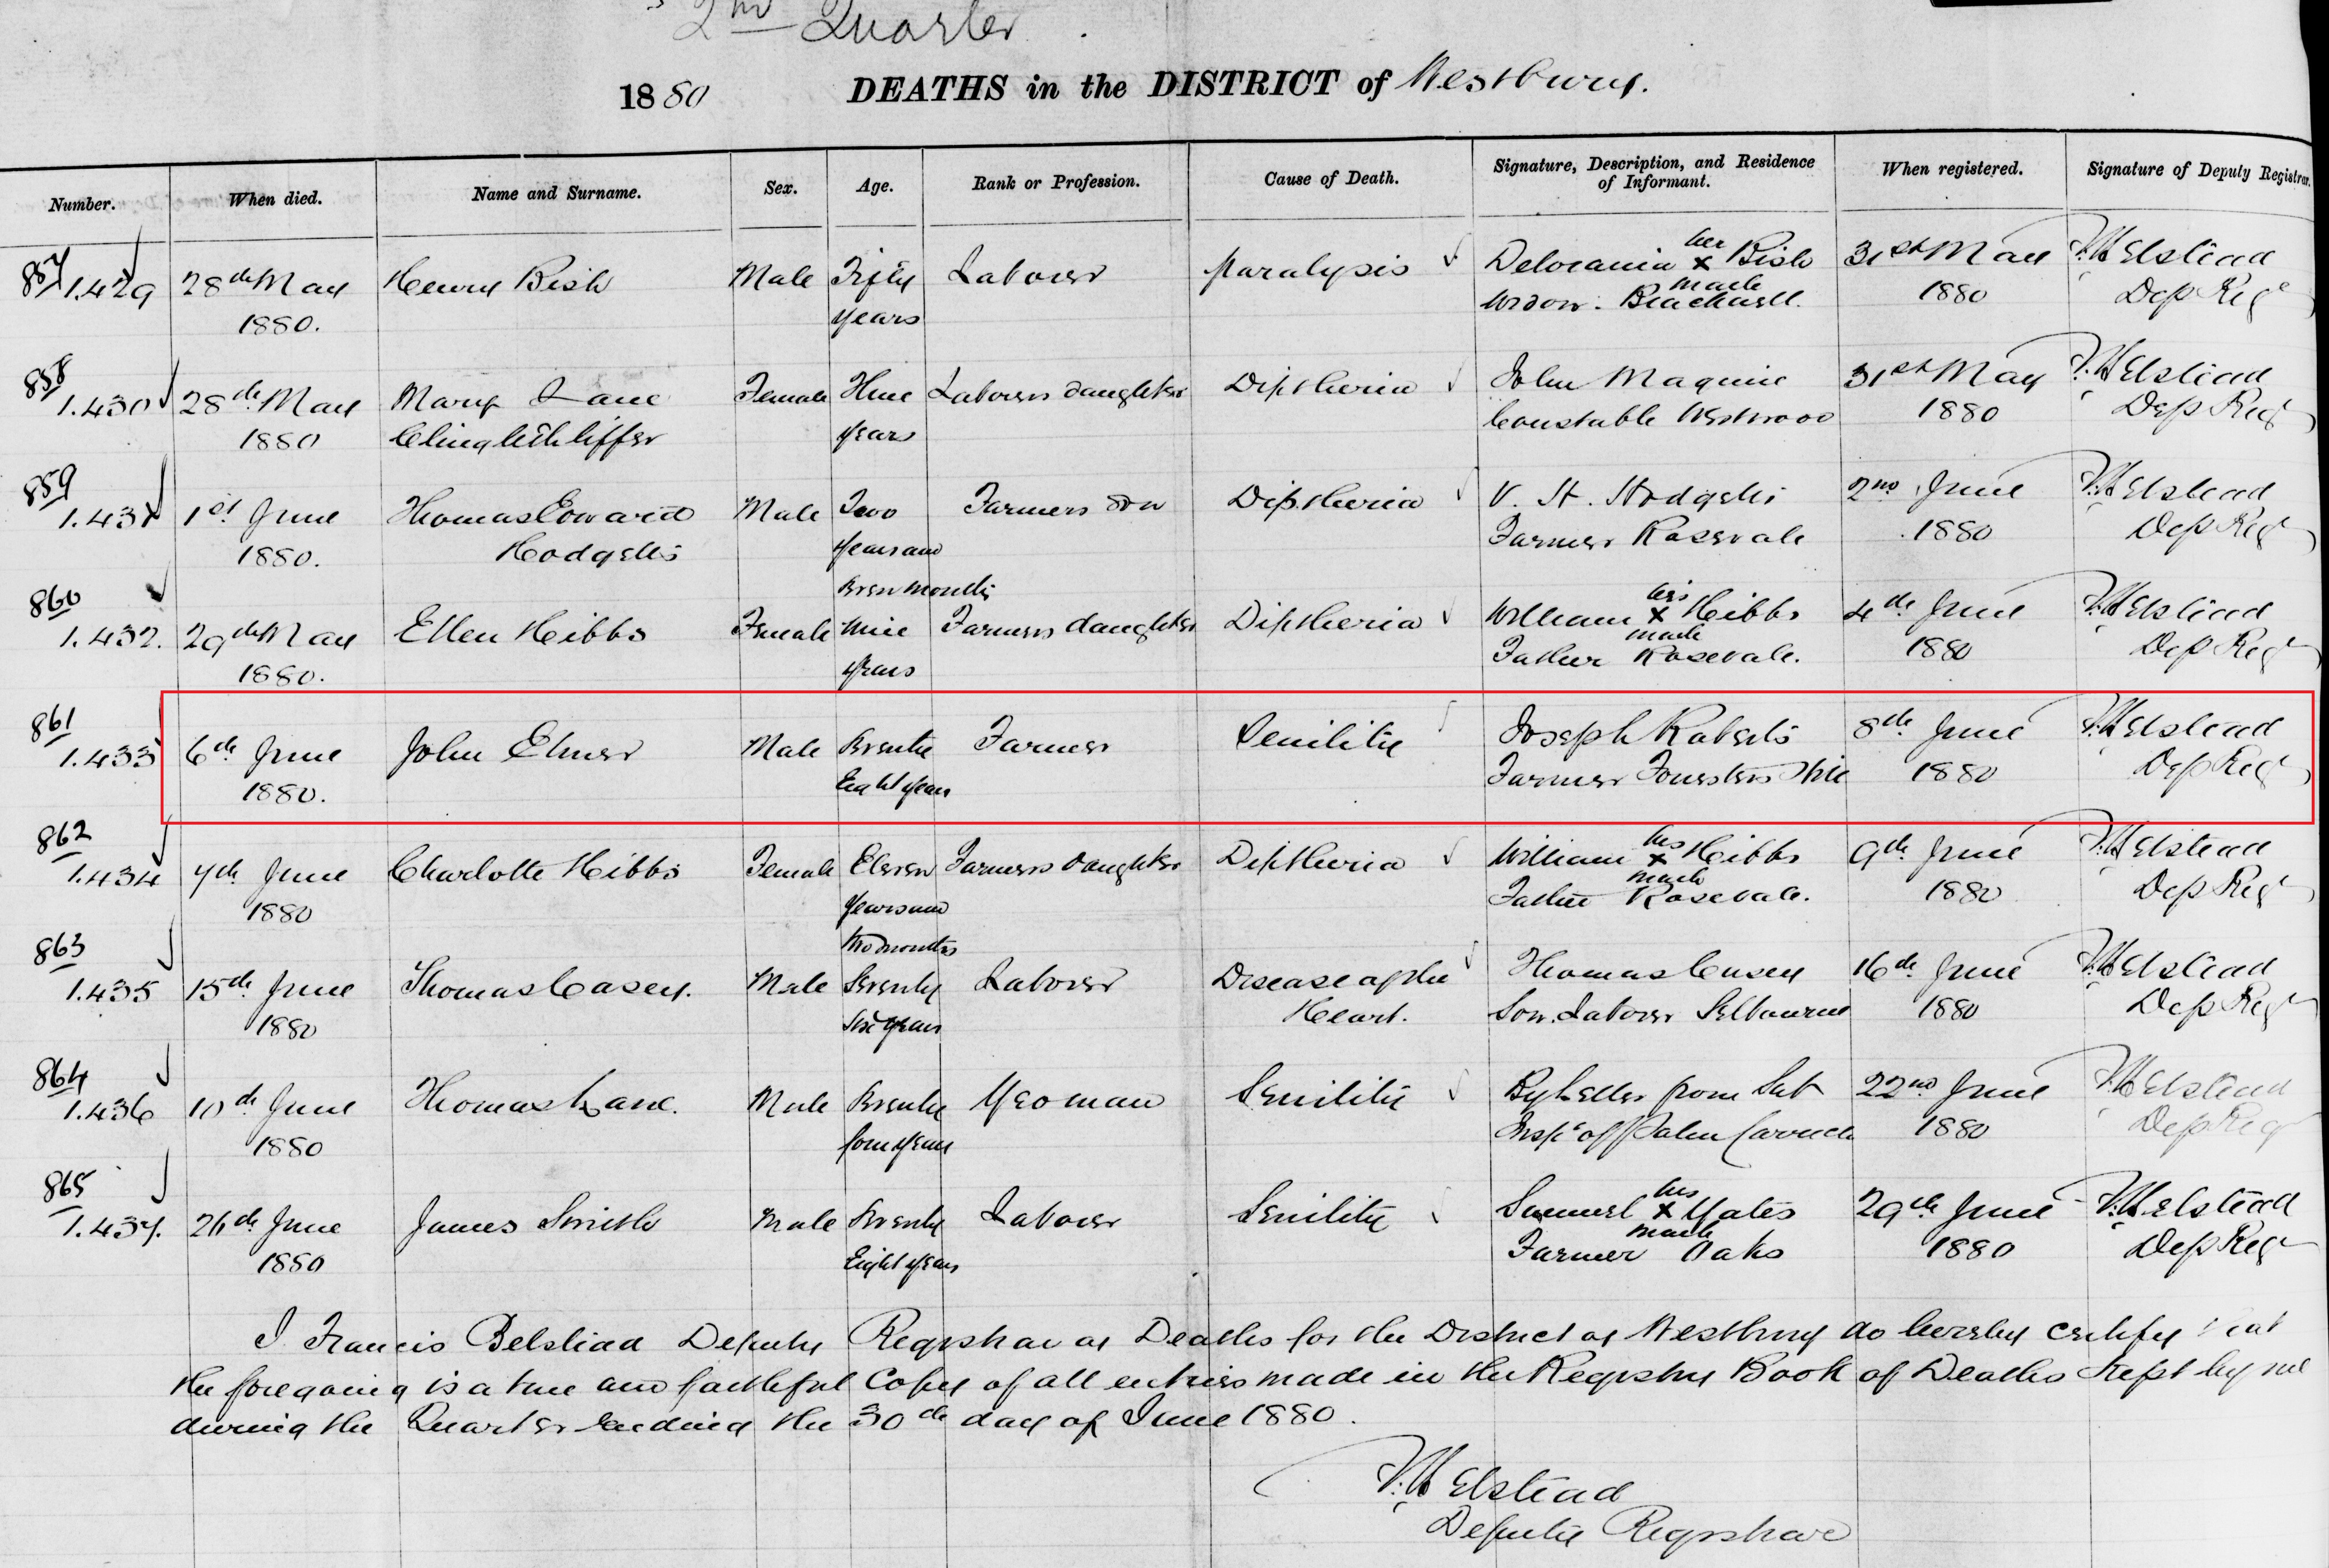 2nd Quarter
1880 DEATHS in the DISTRICT of Westbury.
Number. When died. Name and Surname. Sex. Age. Rank or Profession. Cause of Death. Signature, Description, and Residence of Informant. When registered. Signature of Deputy Registrar.
857 1.429 28th May Henry Bish Male Fifty Labourer paralysis her Bish 31st May Elstead
1880. years Widow. mark 1880 Dep Regr
858 1.430 28th May Mary Jane Female Labourers daughter Diptheria John Maguire 31st May Elstead
1880 years Constable Westwood 1880 Dep Regr
859 1.431 1st June Thomas Edward Male Two Farmers son Diptheria V. H. Hodgetts 2nd June Elstead
1880. Hodgetts years and Farmer Rosevale 1880 Dep Regr
seven months
860 1.432. 29th May Ellen Hibbs Female Nine Farmers daughter Diptheria William his x mark Hibbs 4th June Elstead
1880. years Father Rosevale. 1880 Dep Regr
861 1.433 6th June John Elmer Male Seventy Farmer Senility Joseph Roberts 8th June Elstead
1880. Eight years Farmer 1880 Dep Regr
862 1.434 7th June Charlotte Hibbs Female Eleven Farmers daughter Diptheria William his x mark Hibbs 9th June Elstead
1880 years and Father Rosevale. 1880 Dep Regr
two months
863 1.435 15th June Thomas Casey. Male Seventy Labourer Disease of the Thomas Casey 16th June Elstead
1880 Six years Heart. Son. Labourer Selbourne 1880 Dep Regr
864 1.436 10th June Thomas Lane. Male Seventy Yeoman Senility By Letter from Sub 22nd June Elstead
1880 four years Inspr of 1880 Dep Regr
865 1.437. 26th June James Smith Male Seventy Labourer Senility Samuel his x mark Yates 29th June Elstead
1880 Eight years Farmer Oaks 1880 Dep Regr
I Francis Belstead Deputy Registrar of Deaths for the District of Westbury do hereby certify that
the foregoing is a true and faithful Copy of all entries made in the Registry Book of Deaths kept by me
during the Quarter ending the 30th day of June 1880.
Elstead
Deputy Registrar